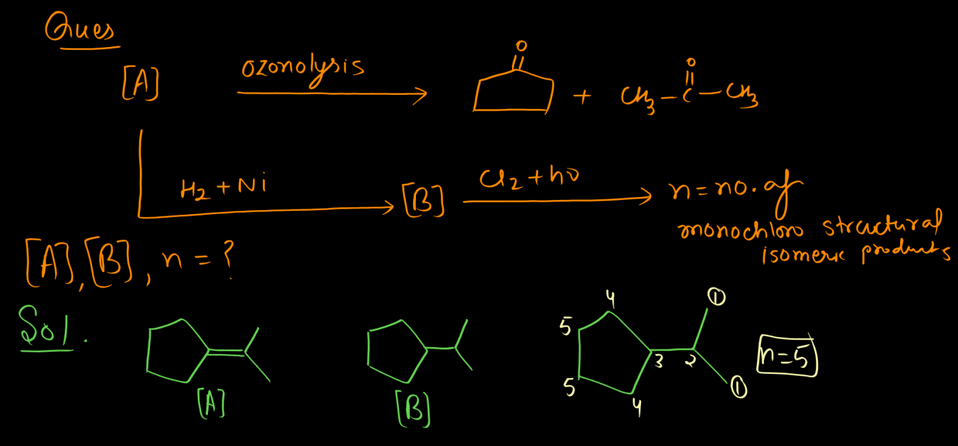 Ques
[A] ozonolysis O + CH3-C-CH3 O
H2+Ni [B] Cl2+hν n=no.of
monochloro structural
isomeric products
[A],[B], n=?
Sol.
4 5 5 4 3 2 ① ① n=5
[A] [B]